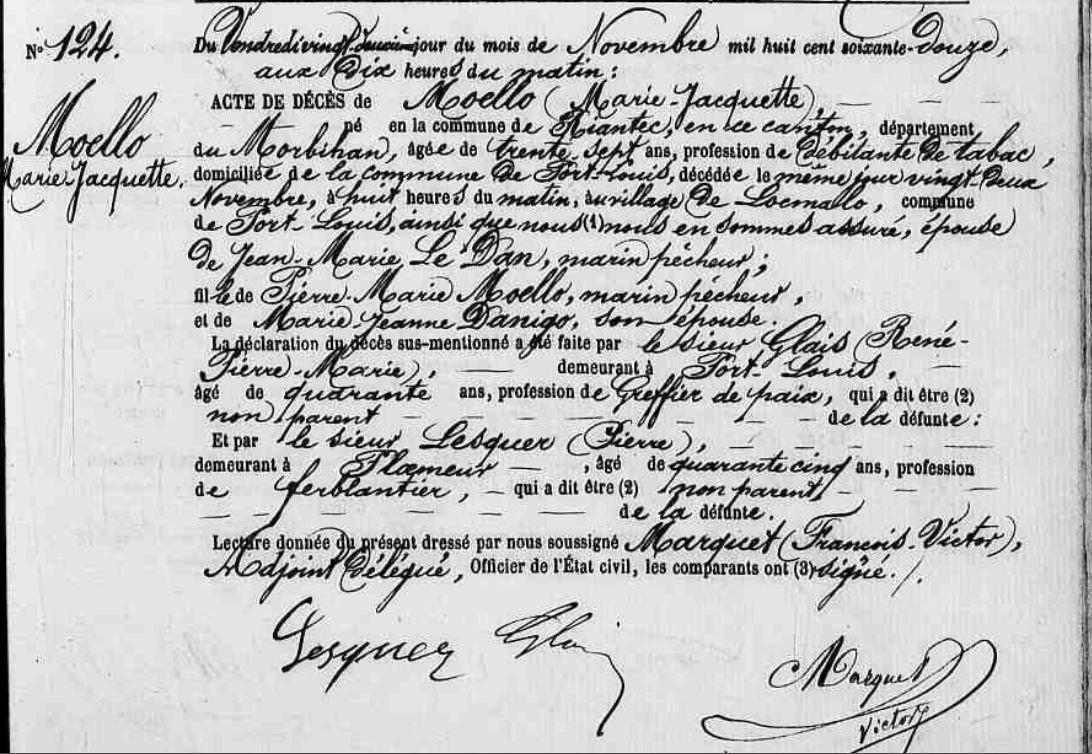 N° 124.
Moello
Marie-Jacquette.
Du Vendredi vingt-deuxième jour du mois de Novembre mil huit cent soixante-douze,
aux Dix heures du matin :
ACTE DE DÉCÈS de Moello (Marie-Jacquette), — —
— né en la commune de Riantec, en ce canton, département
du Morbihan, âgée de trente-sept ans, profession de Débitante de tabac,
domiciliée de la commune de Port-Louis, décédée le même jour vingt-deux
Novembre, à huit heures du matin, au village de Locmalo, commune
de Port-Louis, ainsi que nous (1) nous en sommes assuré, épouse
de Jean-Marie Le Dan, marin pêcheur ;
fille de Pierre-Marie Moello, marin pêcheur,
et de Marie-Jeanne Danigo, son épouse.
La déclaration du décès sus-mentionné a été faite par le sieur Glais (René-
Pierre-Marie), — demeurant à Port-Louis, —
âgé de quarante ans, profession de Greffier de paix, qui a dit être (2)
non parent — — — de la défunte :
Et par le sieur Lesquer (Pierre), — — — —
demeurant à Plœmeur — , âgé de quarante cinq ans, profession
de ferblantier, — qui a dit être (2) non parent — —
— — — — de la défunte.
Lecture donnée du présent dressé par nous soussigné Marquet (François-Victor),
Adjoint Délégué, Officier de l'État civil, les comparants ont (3) signé ./.
Lesquer Glais
Marquet
Victor